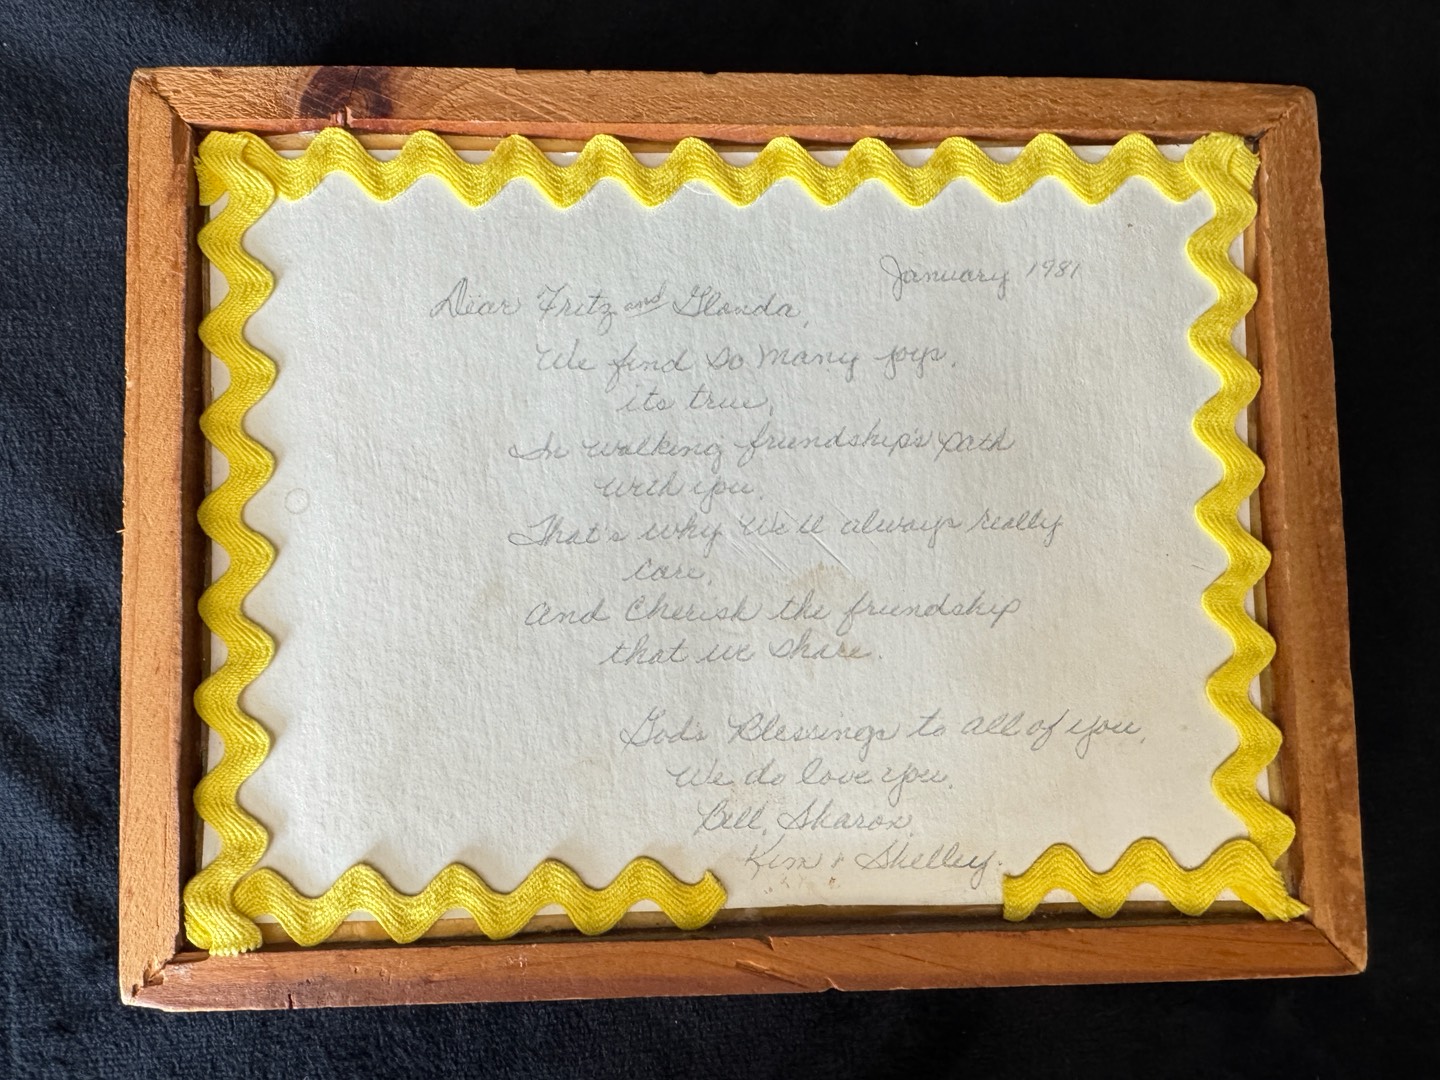 January 1981
Dear Fritz and Glonda,
We find so many joys,
its true,
In walking friendship's path
with you,
That's why We'll always really
care,
And Cherish the friendship
that we share.
God's Blessings to all of you,
We do love you,
Bill, Sharon,
Kim & Shelley.